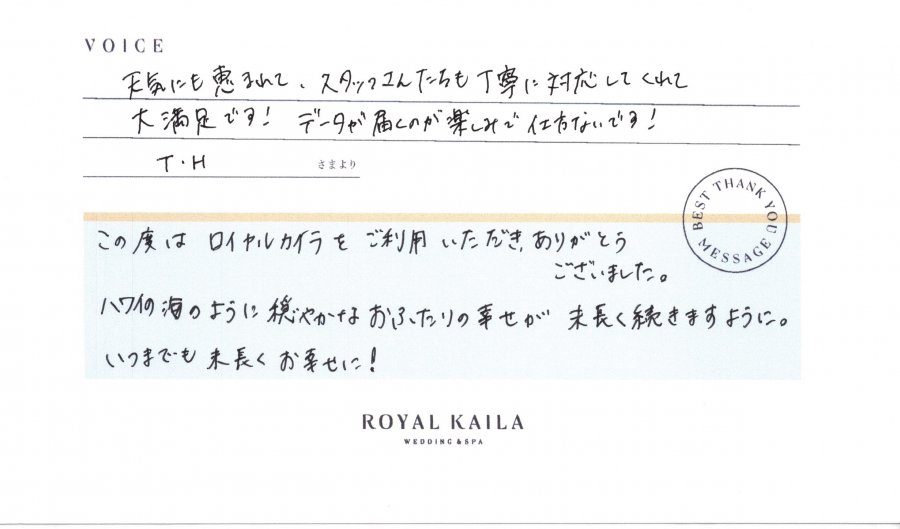 VOICE
天気にも恵まれて、スタッフさんたちも丁寧に対応してくれて
大満足です! データが届くのが楽しみで仕方ないです!
T・H さまより
BEST THANK YOU MESSAGE
この度は ロイヤルカイラを ご利用 いただき、ありがとう
ございました。
ハワイの海のように穏やかな おふたりの幸せが 末長く続きますように。
いつまでも 末長く お幸せに!
ROYAL KAILA
WEDDING & SPA